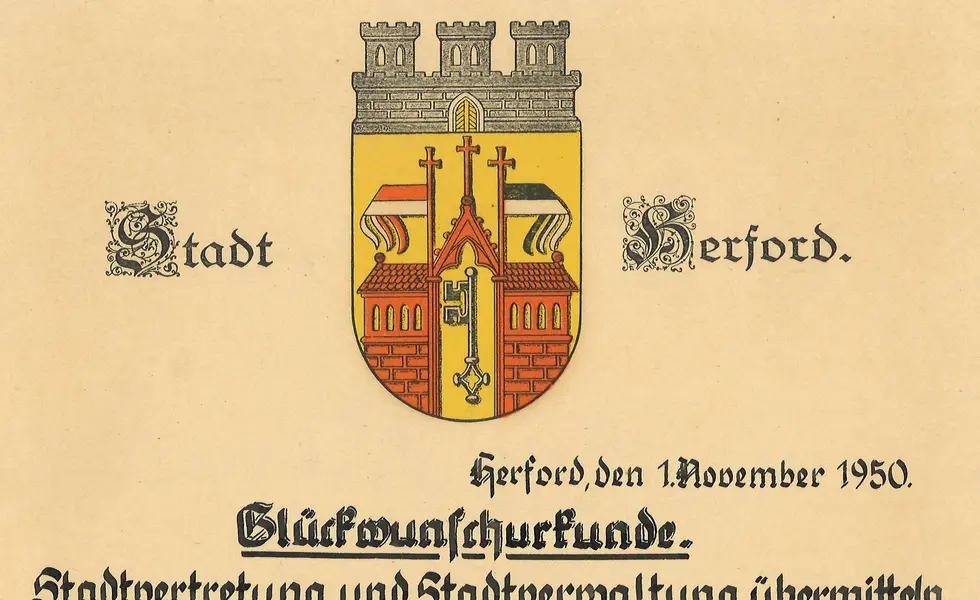 Stadt Herford.
Herford, den 1. November 1950.
Glückwunschurkunde.
Stadtvertretung und Stadtverwaltung übermitteln